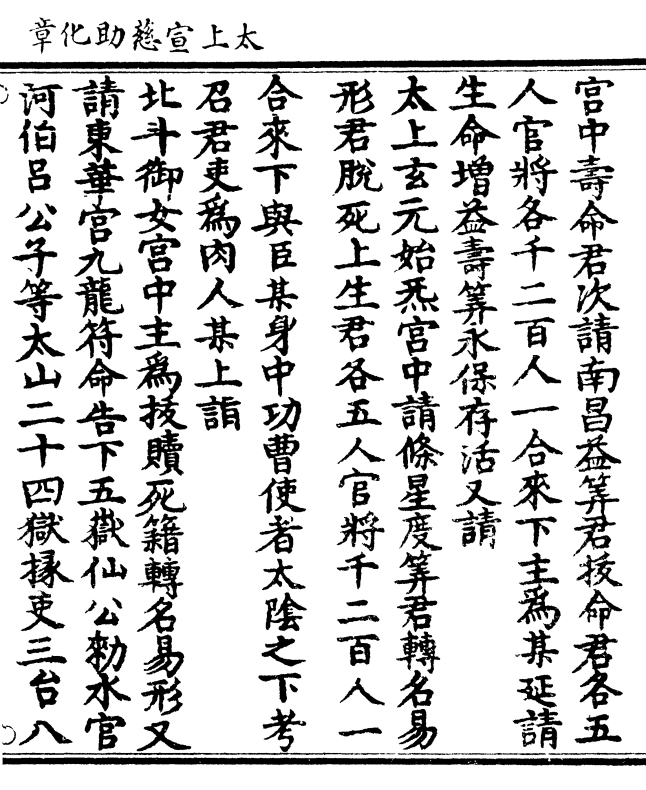 太上宣慈助化章
宫中壽命君次請南昌益筭君拔命君各五
人官將各千二百人一合來下主爲某延請
生命增益壽筭永保存活又請
太上玄元始炁宫中請條星度筭君轉名易
形君脫死上生君各五人官將千二百人一
合來下與臣某身中功曹使者太陰之下考
召君吏爲肉人某上詣
北斗御女宫中主爲拔贖死籍轉名易形又
請東華宫九龍符命告下五嶽仙公勑水官
河伯吕公子等太山二十四獄掾吏三台八